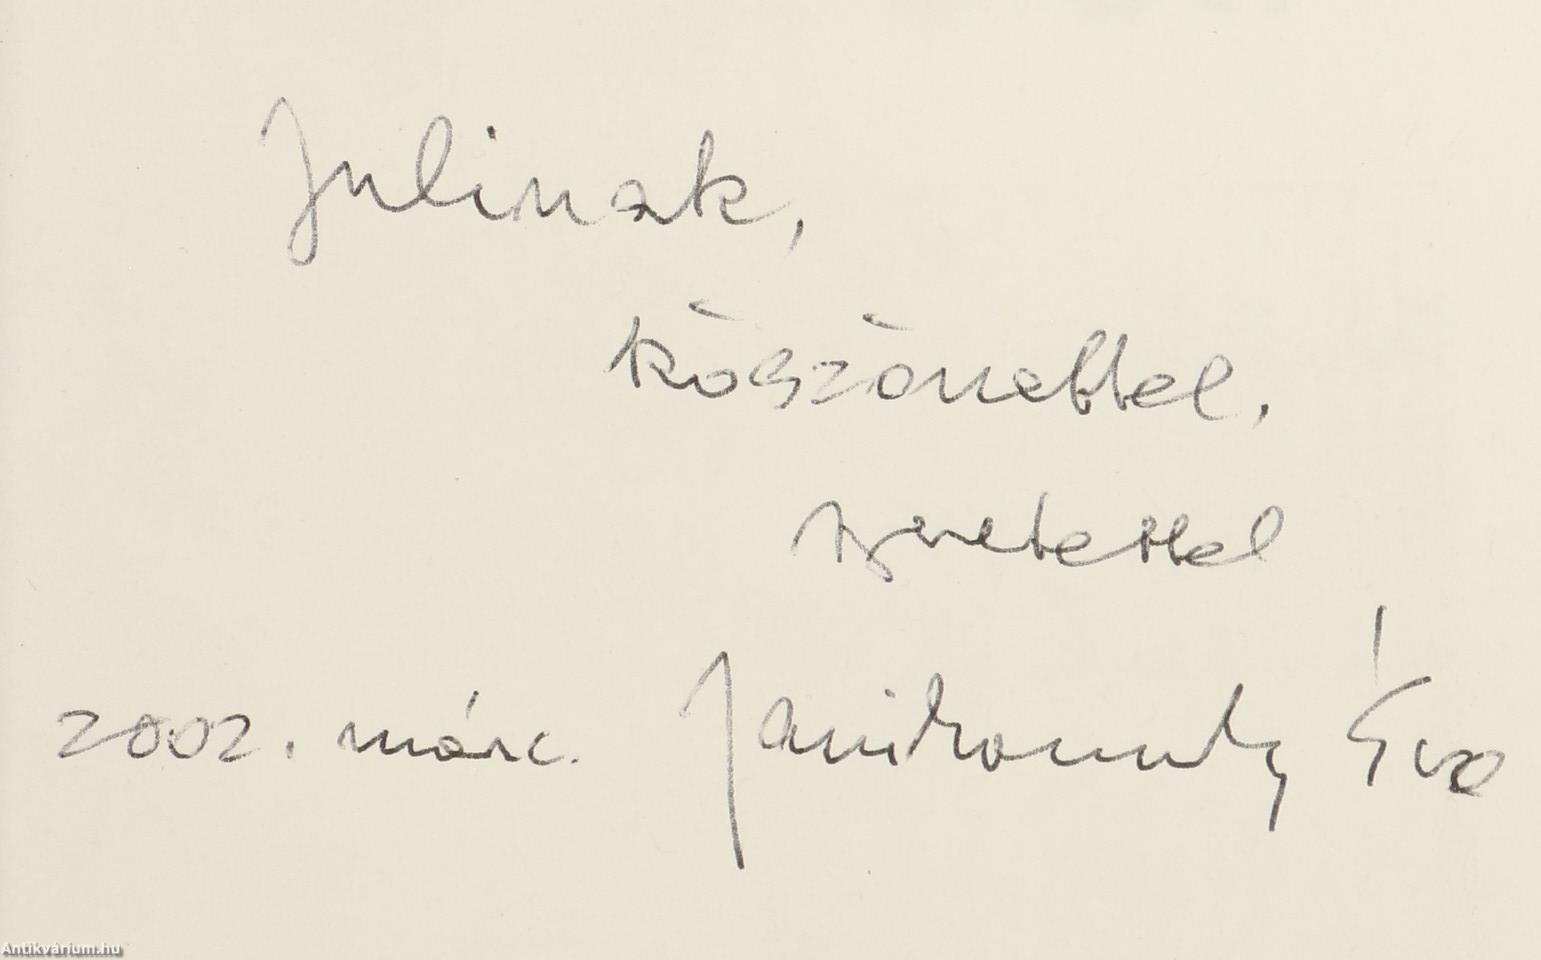 Julinak,
köszönettel,
szeretettel
2002. márc. Janikovszky Éva
Antikvárium.hu